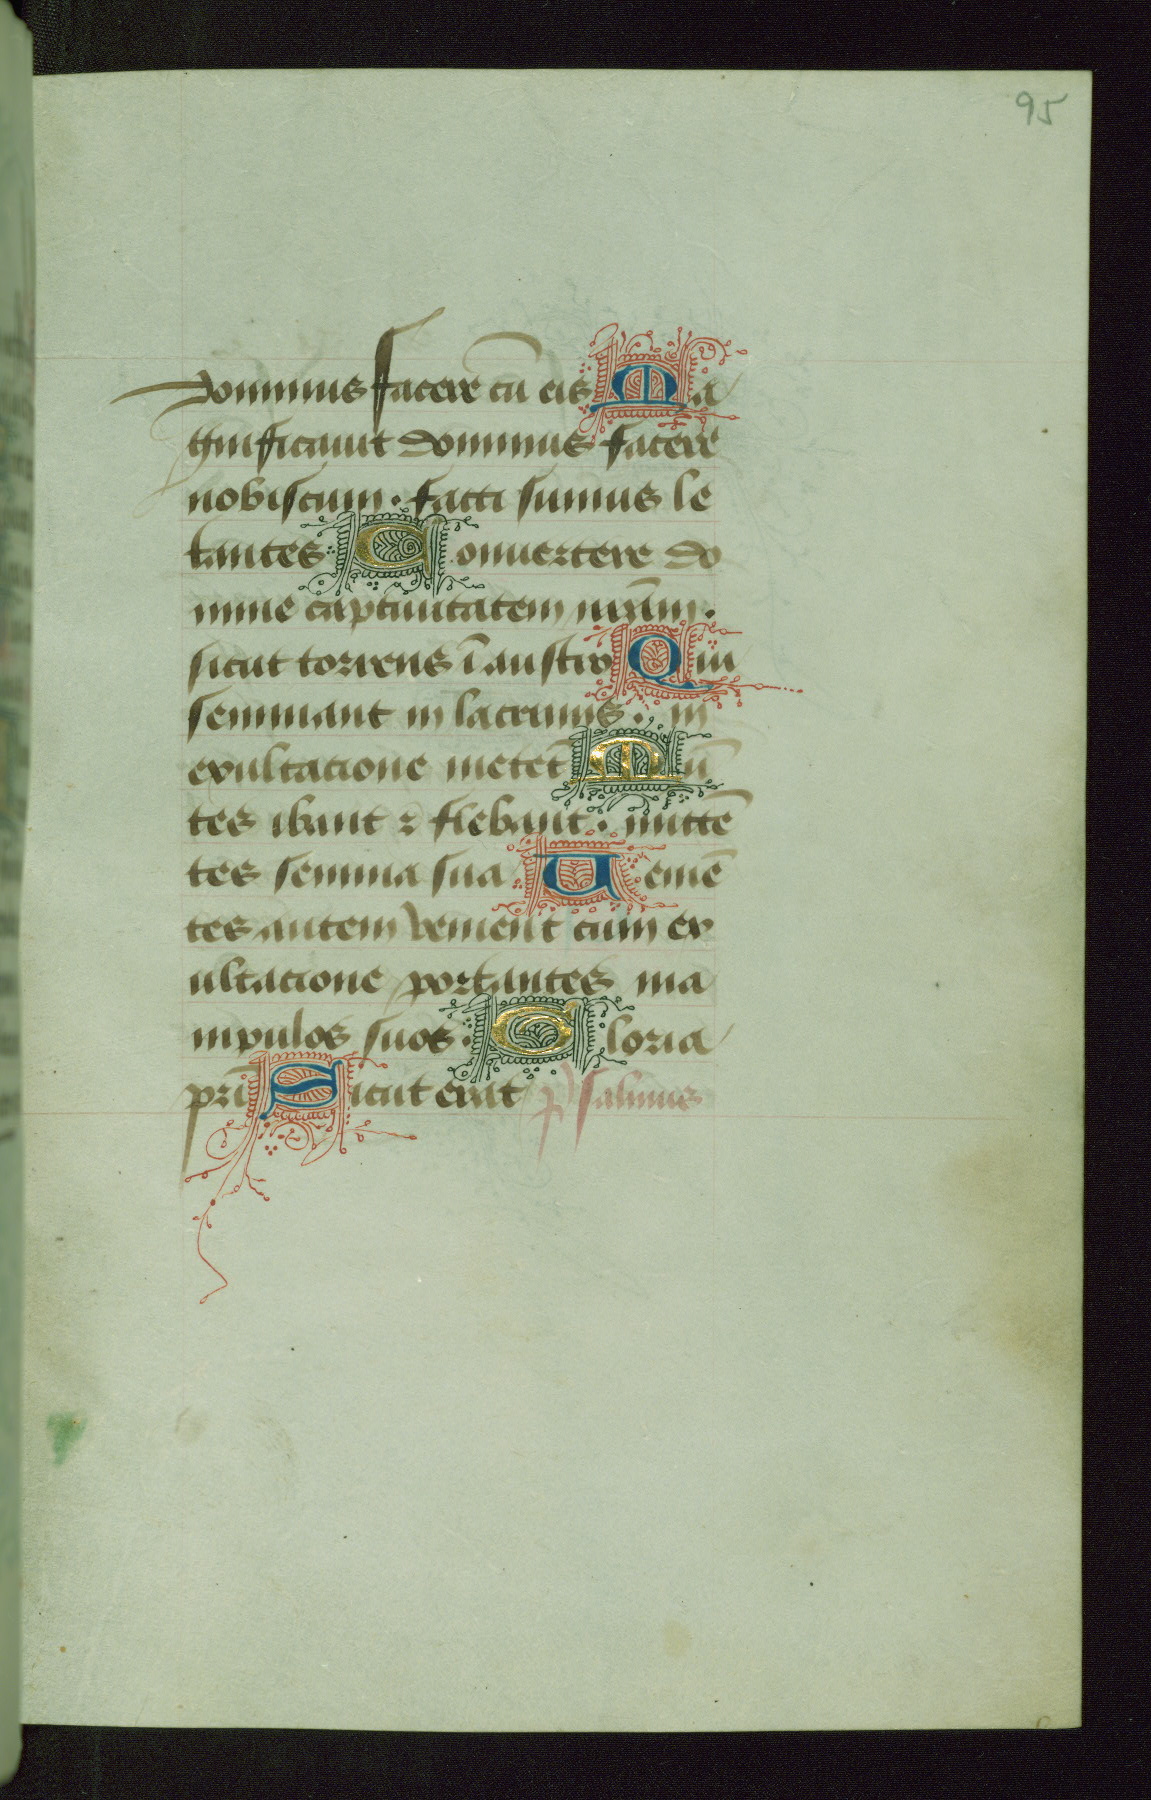 95
dominus facere cū eis Ma
gnificauit dominus facere
nobiscum · facti sumus le
tantes Conuertere do
mine captiuitatem nr̄am ·
sicut torrens ī austro Qui
seminant in lacrimis · in
exultacione metēt Eū
tes ibant ⁊ flebant · mittē
tes semina sua Ueniē
tes autem venient cum ex
ultacione portantes ma
nipulos suos · Gloria
pr̄i Sicut erat psalmus